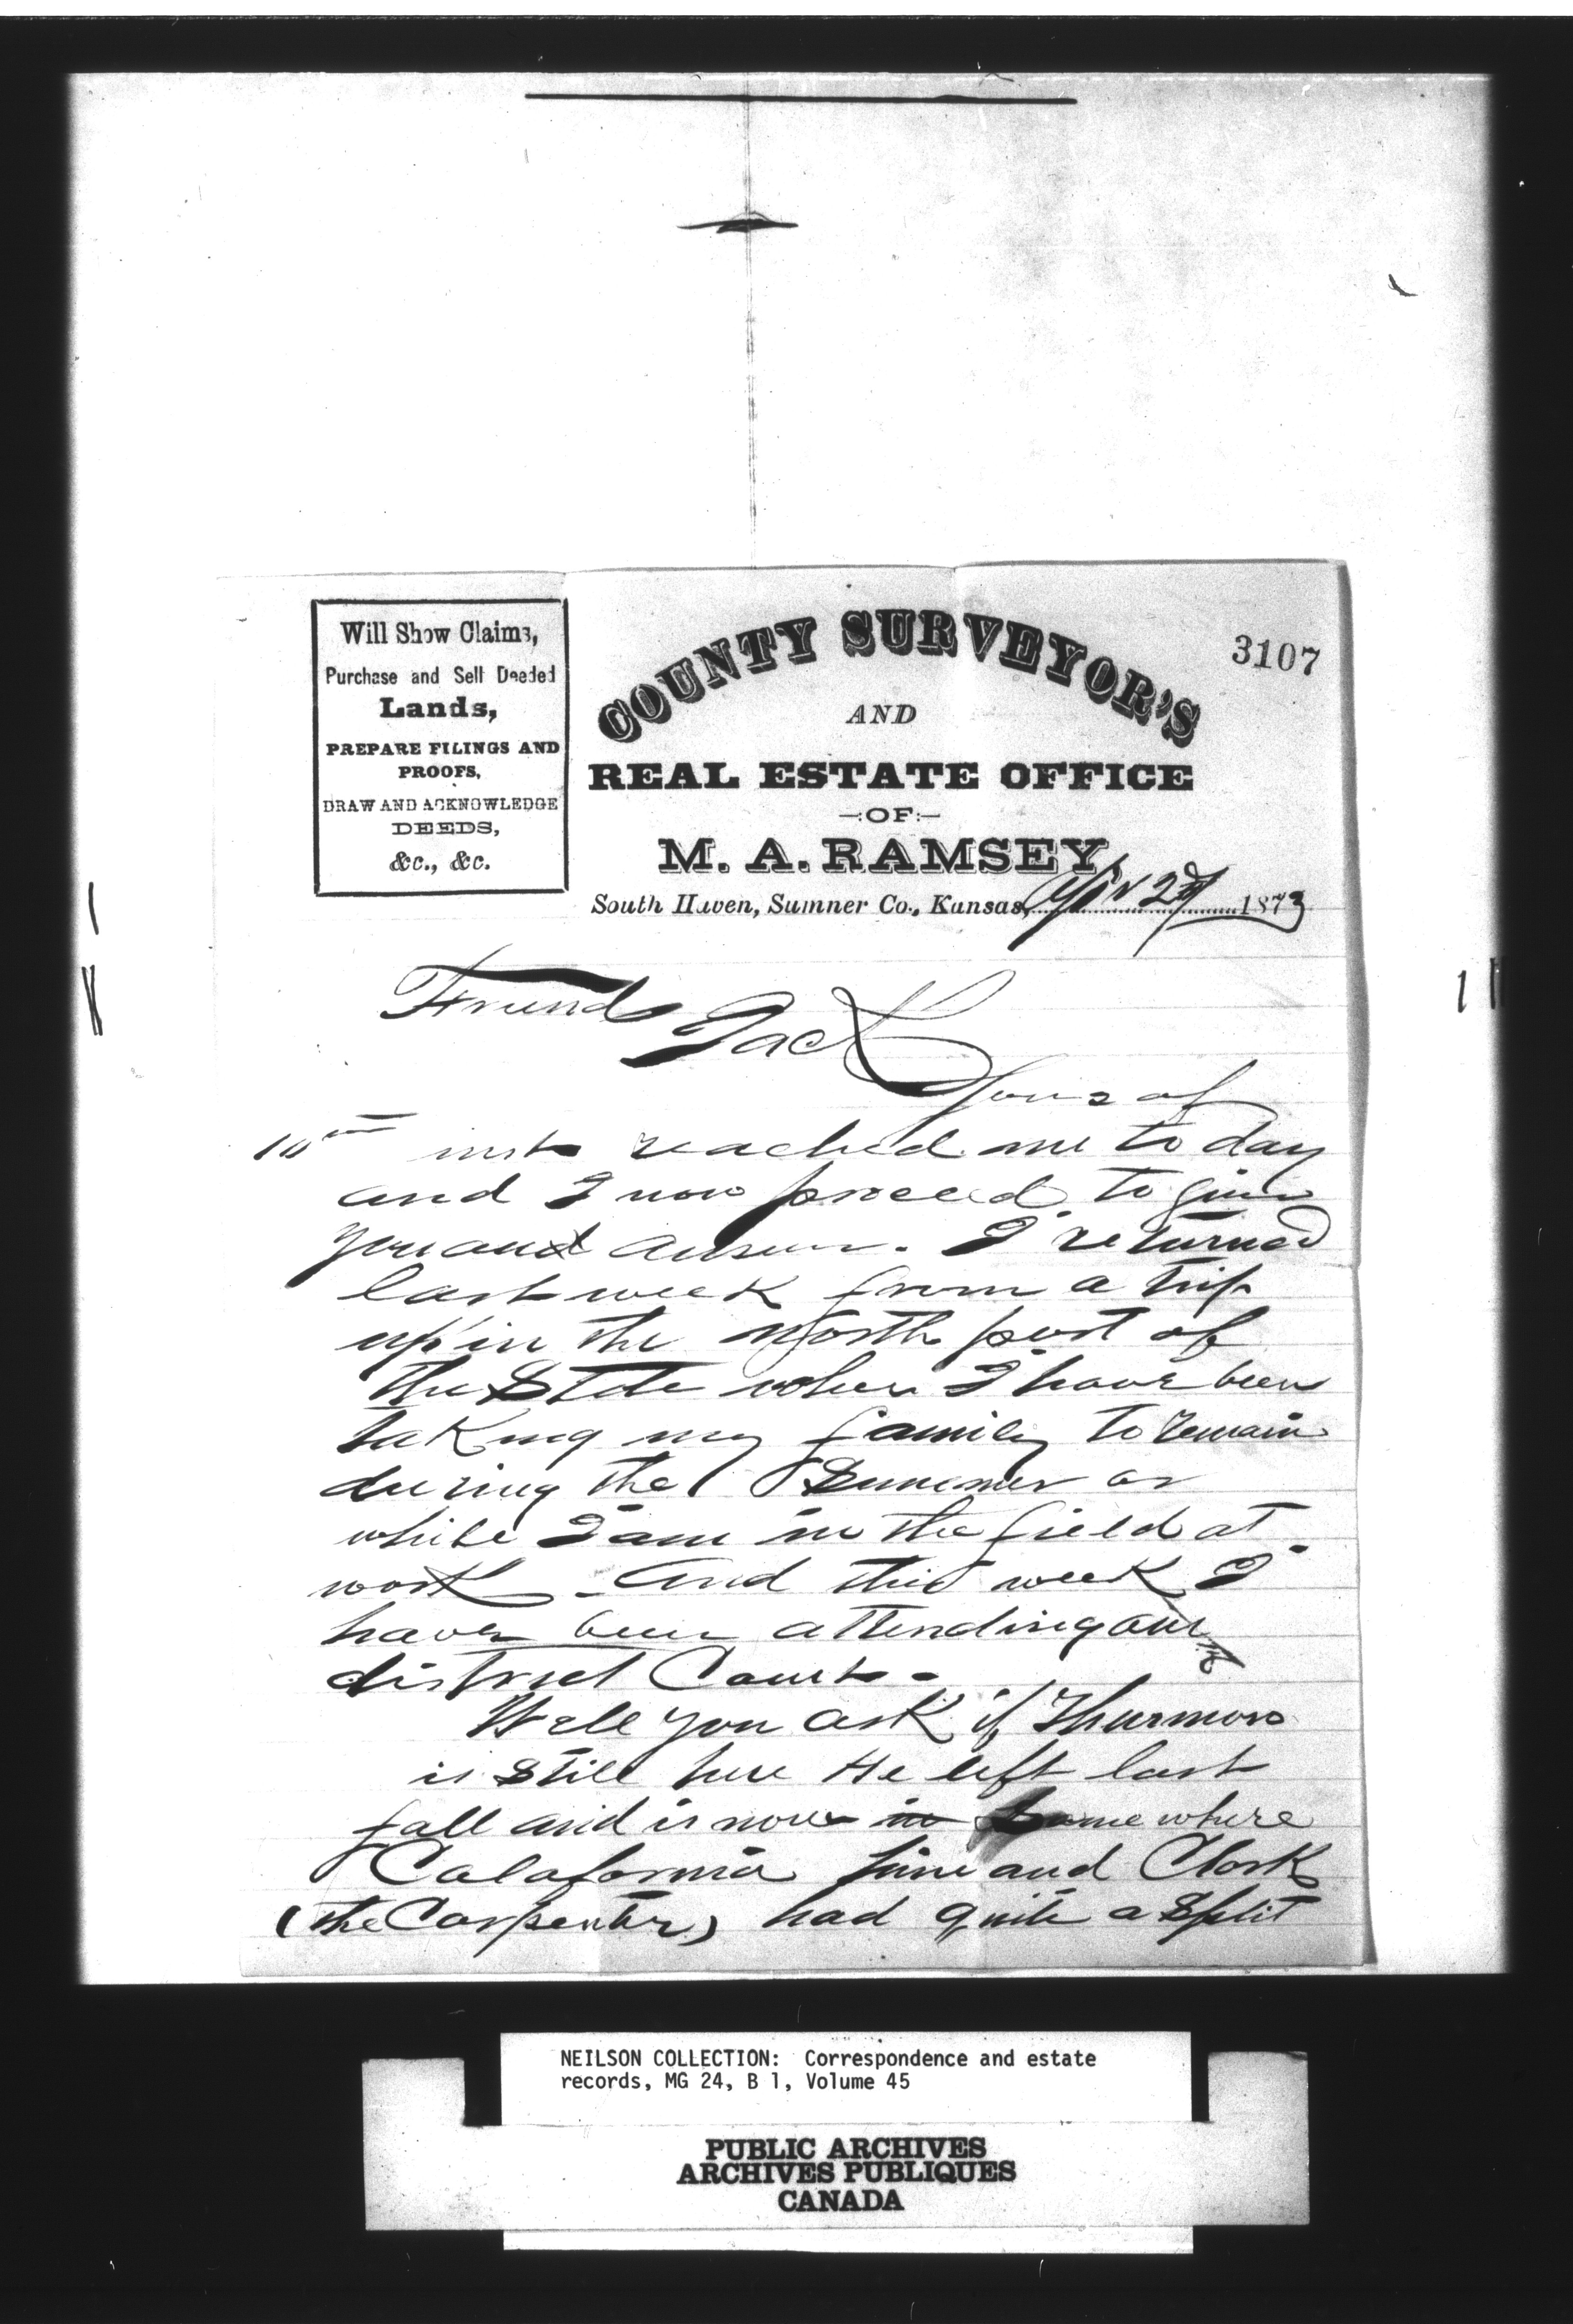 Will Show Claims,
Purchase and Sell Deeded
Lands,
PREPARE FILINGS AND
PROOFS,
DRAW AND ACKNOWLEDGE
DEEDS,
&c., &c.
3107
COUNTY SURVEYOR'S
AND
REAL ESTATE OFFICE
—:OF:—
M. A. RAMSEY
South Haven, Sumner Co., Kansas, 1873
Friend Jack
Yours of
10th inst reached me to day
and I now proceed to give
you answer. I returned
last week from a trip
up in the North part of
the State where I have been
taking my family to remain
during the Summer or
while I am in the field at
work - And this week I
have been attending our
district Court -
Well you ask if Thurmon
is still here He left last
fall and is now in Some where
Calafornia and Clark
(the Carpenter) had quite a Split
NEILSON COLLECTION: Correspondence and estate
records, MG 24, B 1, Volume 45
PUBLIC ARCHIVES
ARCHIVES PUBLIQUES
CANADA